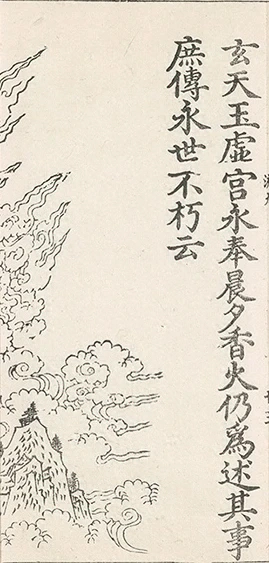 玄天玉虛宮永奉晨夕香火仍爲述其事
庶傳永世不朽云